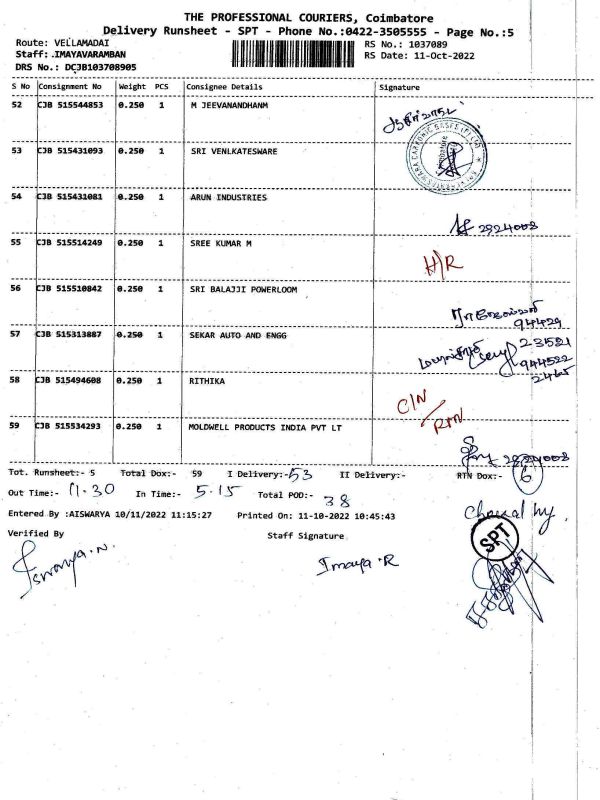 THE PROFESSIONAL COURIERS, Coimbatore
Delivery Runsheet - SPT - Phone No.:0422-3505555 - Page No.:5
Route: VELLAMADAI RS No.: 1037089
Staff: .IMAYAVARAMBAN RS Date: 11-Oct-2022
DRS No.: DCJB103708905
S No Consignment No Weight PCS Consignee Details Signature
52 CJB 515544853 0.250 1 M JEEVANANDHANM
53 CJB 515431093 0.250 1 SRI VENLKATESWARE
54 CJB 515431081 0.250 1 ARUN INDUSTRIES
2824008
55 CJB 515514249 0.250 1 SREE KUMAR M
H/R
56 CJB 515510842 0.250 1 SRI BALAJJI POWERLOOM
94429
57 CJB 515313887 0.250 1 SEKAR AUTO AND ENGG
23581
944522
2465
58 CJB 515494608 0.250 1 RITHIKA
C/N
RTN
59 CJB 515534293 0.250 1 MOLDWELL PRODUCTS INDIA PVT LT
Tot. Runsheet:- 5 Total Dox:- 59 I Delivery:- 53 II Delivery:- RTN Dox:- 6
Out Time:- 11.30 In Time:- 5.15 Total POD:- 38
Entered By :AISWARYA 10/11/2022 11:15:27 Printed On: 11-10-2022 10:45:43
Verified By Staff Signature
SPT
Imaya.R